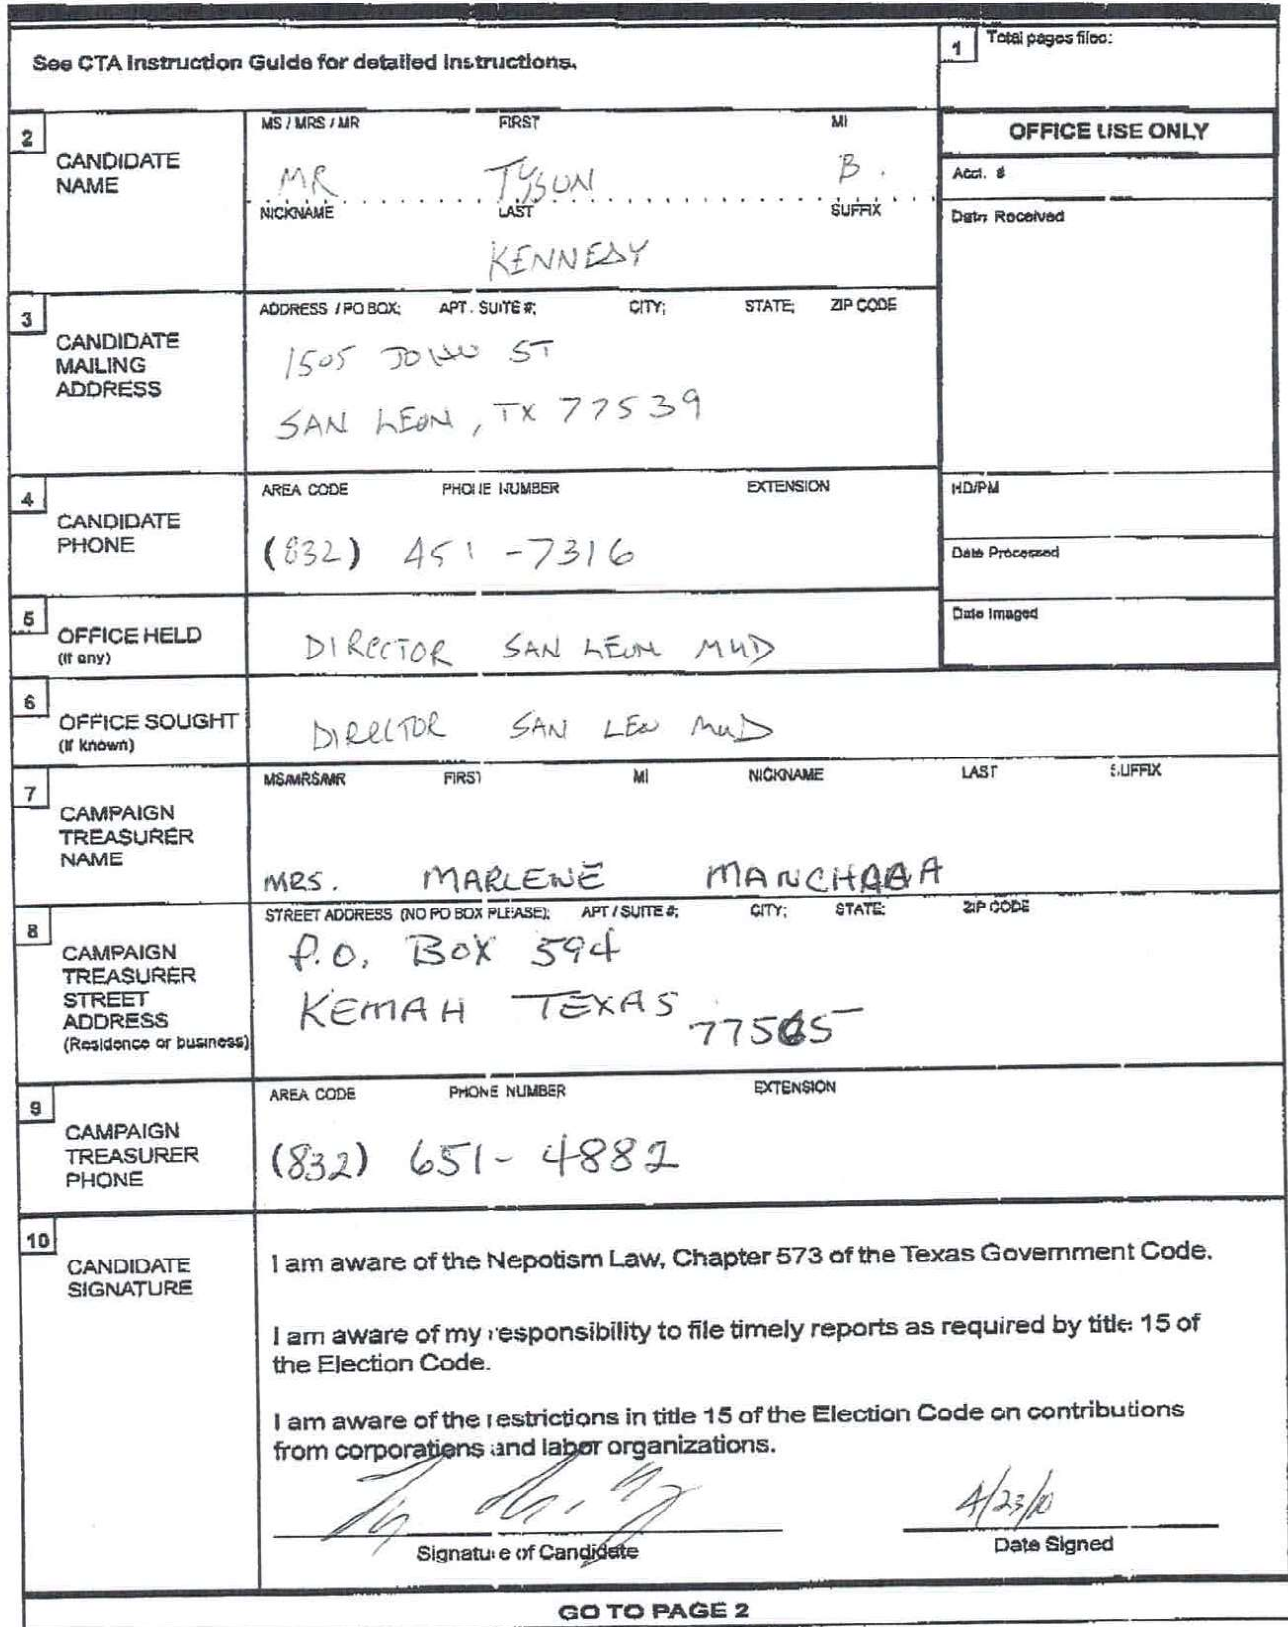 See CTA Instruction Guide for detailed instructions.
1 Total pages filed:
OFFICE USE ONLY
Acct. #
Date Received
HD/PM
Date Processed
Date Imaged
2 CANDIDATE NAME
MS / MRS / MR FIRST MI
MR TYSON B.
NICKNAME LAST SUFFIX
KENNEDY
3 CANDIDATE MAILING ADDRESS
ADDRESS / PO BOX; APT. SUITE #; CITY; STATE; ZIP CODE
1505 ST
SAN LEON, TX 77539
4 CANDIDATE PHONE
AREA CODE PHONE NUMBER EXTENSION
(832) 451-7316
5 OFFICE HELD (if any)
DIRECTOR SAN LEON MUD
6 OFFICE SOUGHT (if known)
DIRECTOR SAN LEON MUD
7 CAMPAIGN TREASURER NAME
MS/MRS/MR FIRST MI NICKNAME LAST SUFFIX
MRS. MARLENE
8 CAMPAIGN TREASURER STREET ADDRESS (Residence or business)
STREET ADDRESS (NO PO BOX PLEASE); APT / SUITE #; CITY; STATE; ZIP CODE
P.O. BOX 594
KEMAH TEXAS 77565
9 CAMPAIGN TREASURER PHONE
AREA CODE PHONE NUMBER EXTENSION
(832) 651-4882
10 CANDIDATE SIGNATURE
I am aware of the Nepotism Law, Chapter 573 of the Texas Government Code.
I am aware of my responsibility to file timely reports as required by title 15 of
the Election Code.
I am aware of the restrictions in title 15 of the Election Code on contributions
from corporations and labor organizations.
4/23/10
Signature of Candidate Date Signed
GO TO PAGE 2